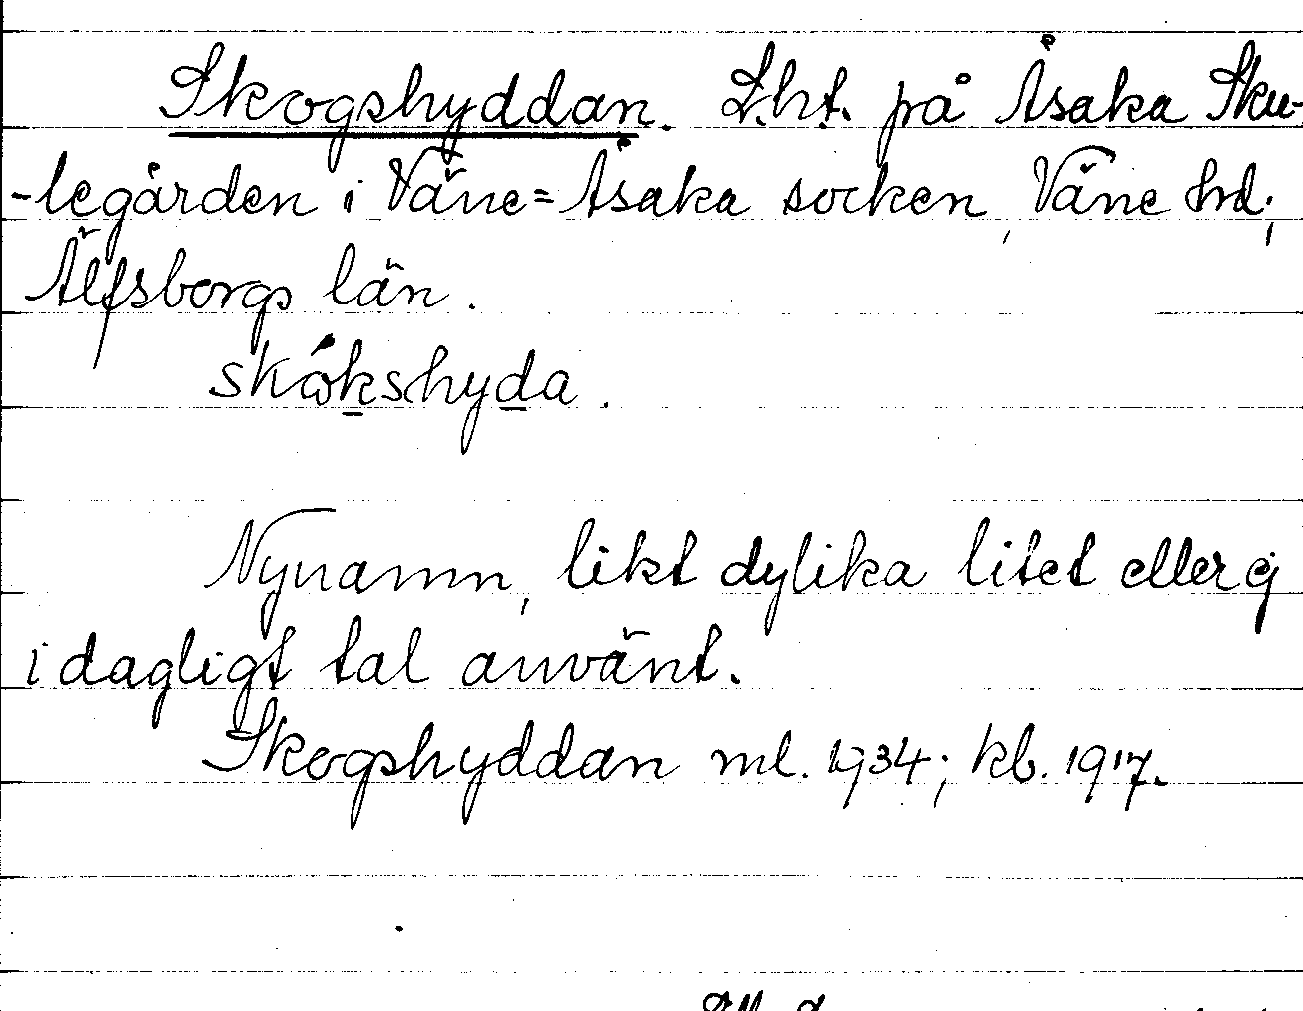 Skogshyddan. L.ht. på Åsaka Sku-
-legården i Väne=Åsaka socken, Väne hd;
Älfsborgs län.
skåkshyda.
Nynamn, likt dylika litet eller ej
i dagligt tal använt.
Skogshyddan ml. 1934; kb. 1917.